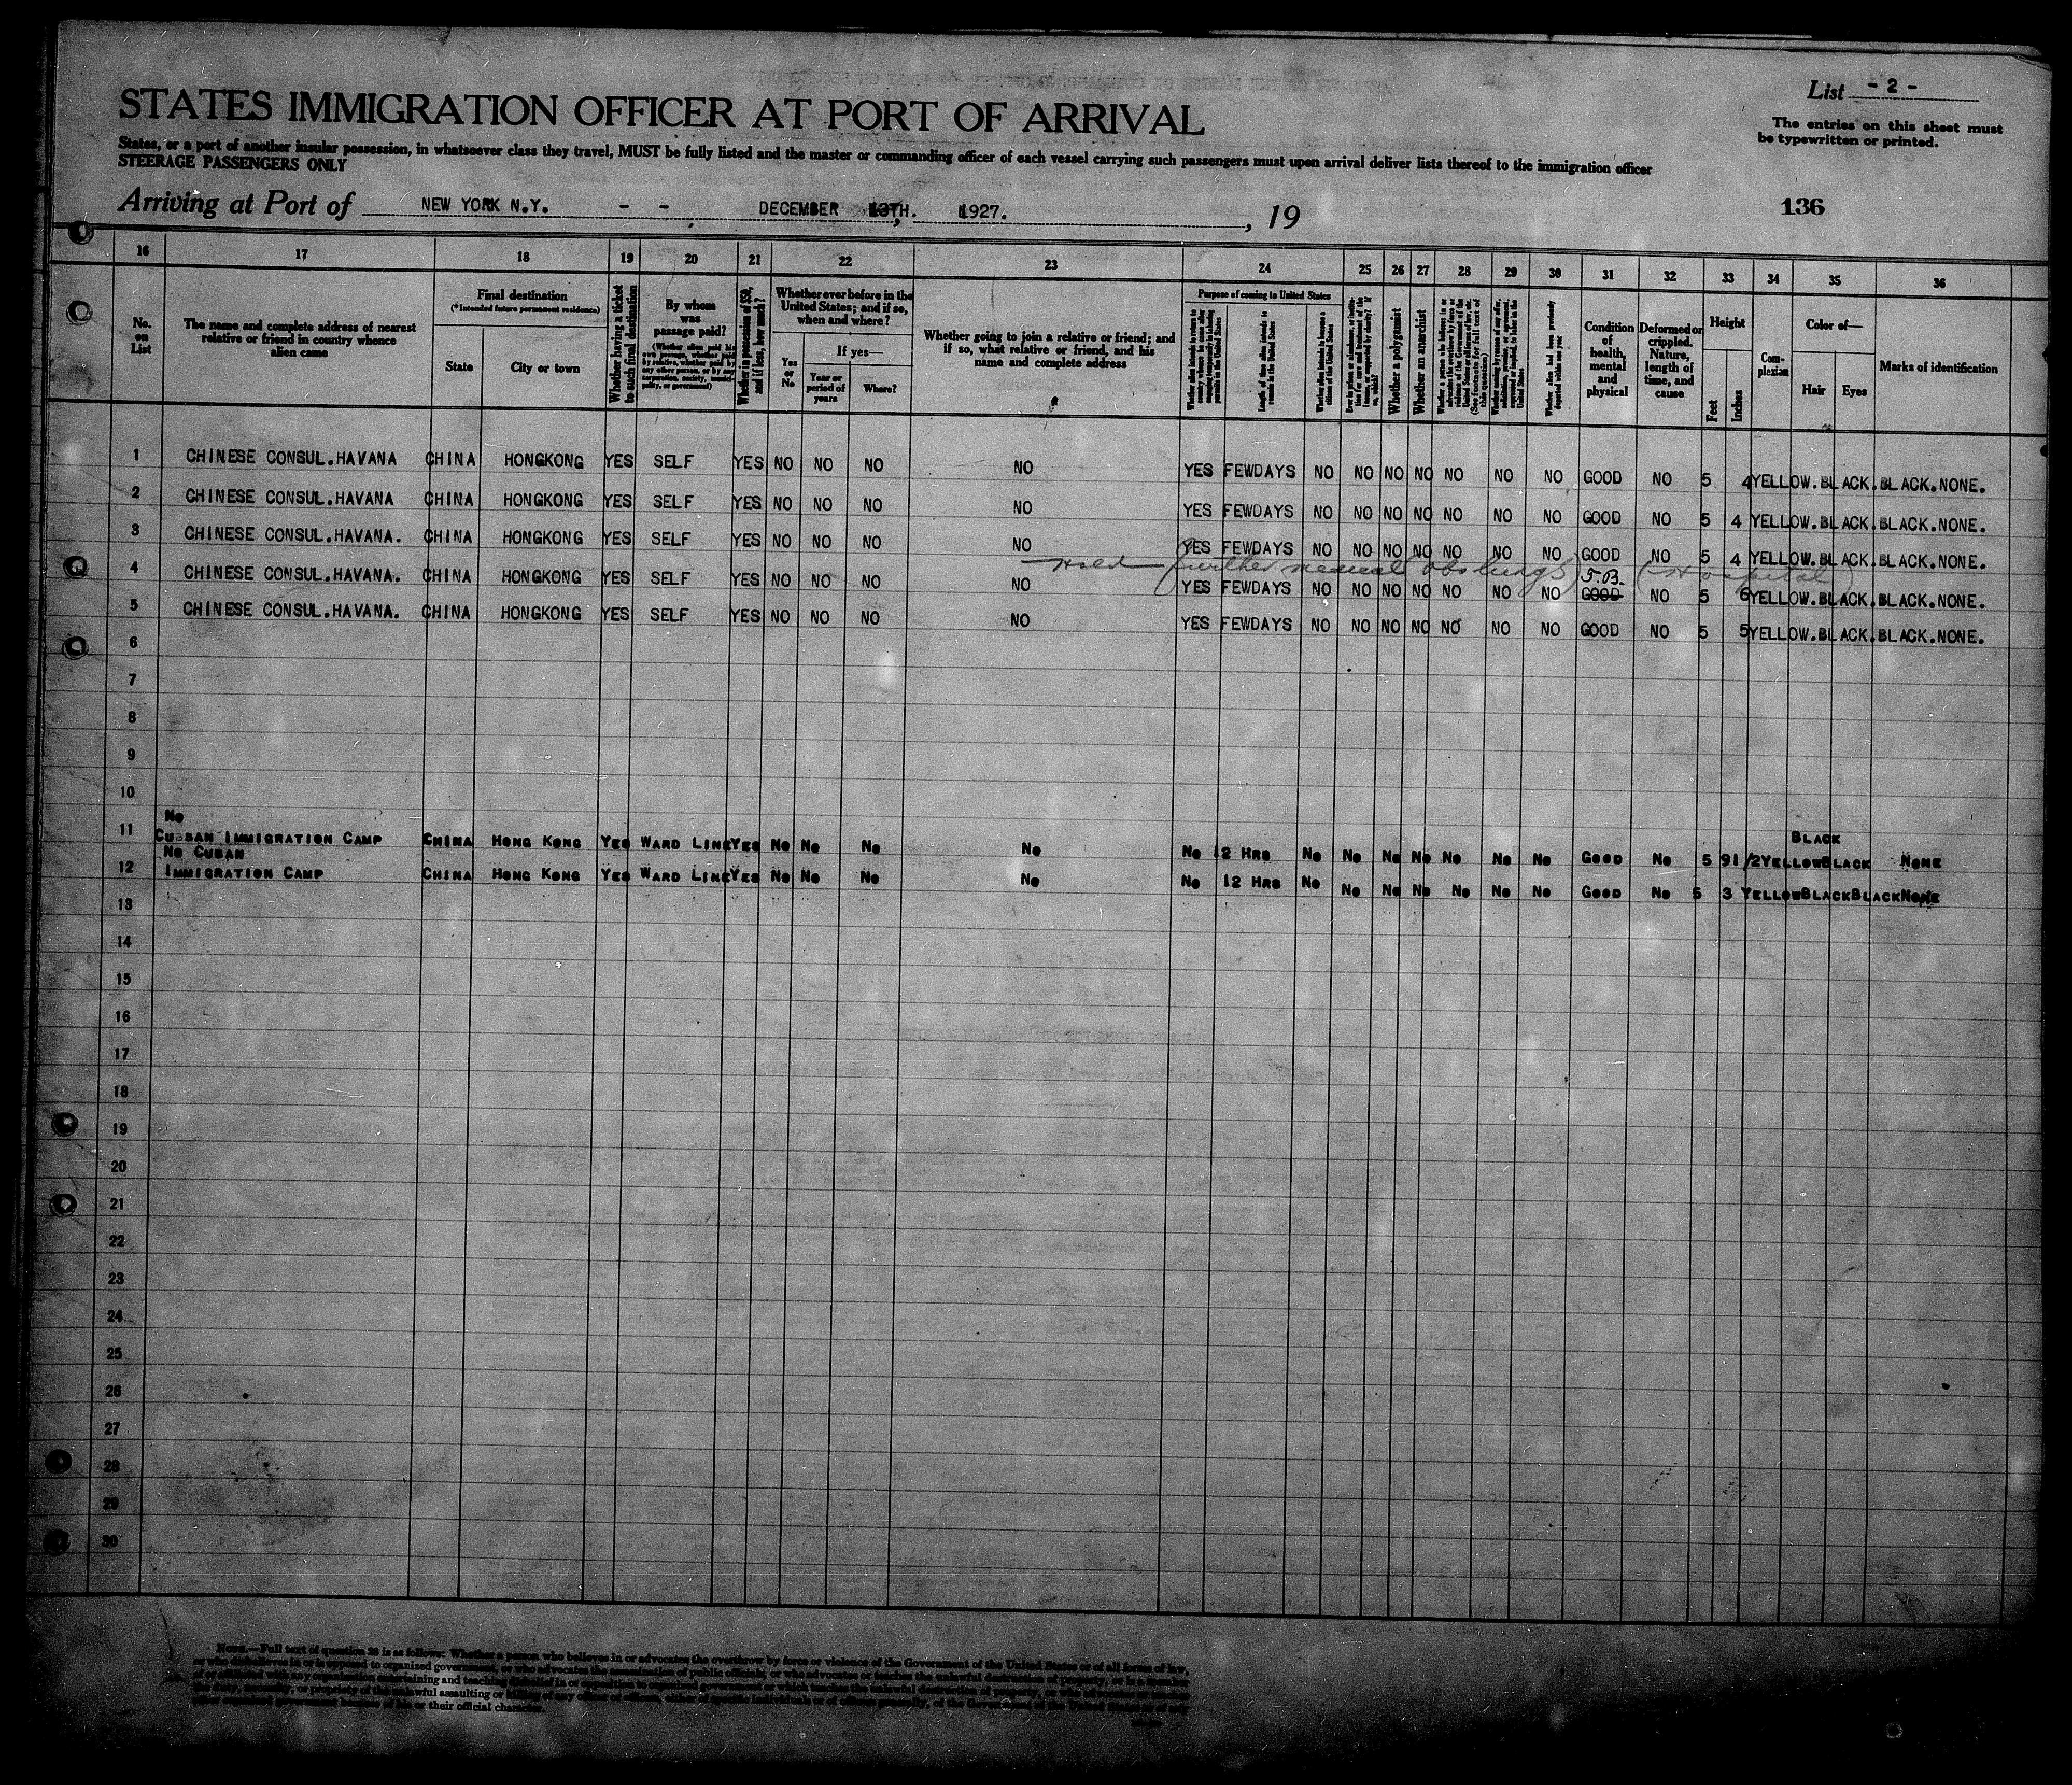 List - 2 -
STATES IMMIGRATION OFFICER AT PORT OF ARRIVAL
The entries on this sheet must
be typewritten or printed.
States, or a port of another insular possession, in whatsoever class they travel, MUST be fully listed and the master or commanding officer of each vessel carrying such passengers must upon arrival deliver lists thereof to the immigration officer
STEERAGE PASSENGERS ONLY
Arriving at Port of NEW YORK N.Y. - - DECEMBER 13TH. 1927. , 19
136
16 17 18 19 20 21 22 23 24 25 26 27 28 29 30 31 32 33 34 35 36
No. on List
The name and complete address of nearest relative or friend in country whence alien came
Final destination
(*Intended future permanent residence)
State
City or town
Whether having a ticket to such final destination
By whom was passage paid?
(Whether alien paid his own passage, whether paid by relative, whether paid by any other person, or by any corporation, society, municipality, or government)
Whether in possession of $50, and if less, how much?
Whether ever before in the United States; and if so, when and where?
Yes or No
If yes—
Year or period of years
Where?
Whether going to join a relative or friend; and if so, what relative or friend, and his name and complete address
Purpose of coming to United States
Length of time alien intends to remain in the United States
Whether alien intends to become a citizen of the United States
Whether a polygamist
Whether an anarchist
Whether alien had been previously deported within one year
Condition of health, mental and physical
Deformed or crippled. Nature, length of time, and cause
Height
Feet
Inches
Complexion
Color of—
Hair
Eyes
Marks of identification
1 CHINESE CONSUL.HAVANA CHINA HONGKONG YES SELF YES NO NO NO NO YES FEWDAYS NO NO NO NO NO NO NO GOOD NO 5 4 YELLOW.BLACK.BLACK.NONE.
2 CHINESE CONSUL.HAVANA CHINA HONGKONG YES SELF YES NO NO NO NO YES FEWDAYS NO NO NO NO NO NO NO GOOD NO 5 4 YELLOW.BLACK.BLACK.NONE.
3 CHINESE CONSUL.HAVANA. CHINA HONGKONG YES SELF YES NO NO NO NO YES FEWDAYS NO NO NO NO NO NO NO GOOD NO 5 4 YELLOW.BLACK.BLACK.NONE.
Hold (further (Hospital)
4 CHINESE CONSUL.HAVANA. CHINA HONGKONG YES SELF YES NO NO NO NO YES FEWDAYS NO NO NO NO NO NO NO GOOD NO 5 6 YELLOW.BLACK.BLACK.NONE.
5 CHINESE CONSUL.HAVANA. CHINA HONGKONG YES SELF YES NO NO NO NO YES FEWDAYS NO NO NO NO NO NO NO GOOD NO 5 5 YELLOW.BLACK.BLACK.NONE.
6
7
8
9
10
No
11 CUBBAN IMMIGRATION CAMP CHINA HONG KONG YES WARD LINE YES NO NO NO NO NO 12 HRS NO NO NO NO NO NO NO GOOD NO 5 91/2 YELLOW BLACK BLACK NONE
No CUBAN
12 IMMIGRATION CAMP CHINA HONG KONG YES WARD LINE YES NO NO NO NO NO 12 HRS NO NO NO NO NO NO NO GOOD NO 5 3 YELLOW BLACK BLACK NONE
13
14
15
16
17
18
19
20
21
22
23
24
25
26
27
28
29
30
NOTE.—Full text of question 28 is as follows: Whether a person who believes in or advocates the overthrow by force or violence of the Government of the United States or of all forms of law,